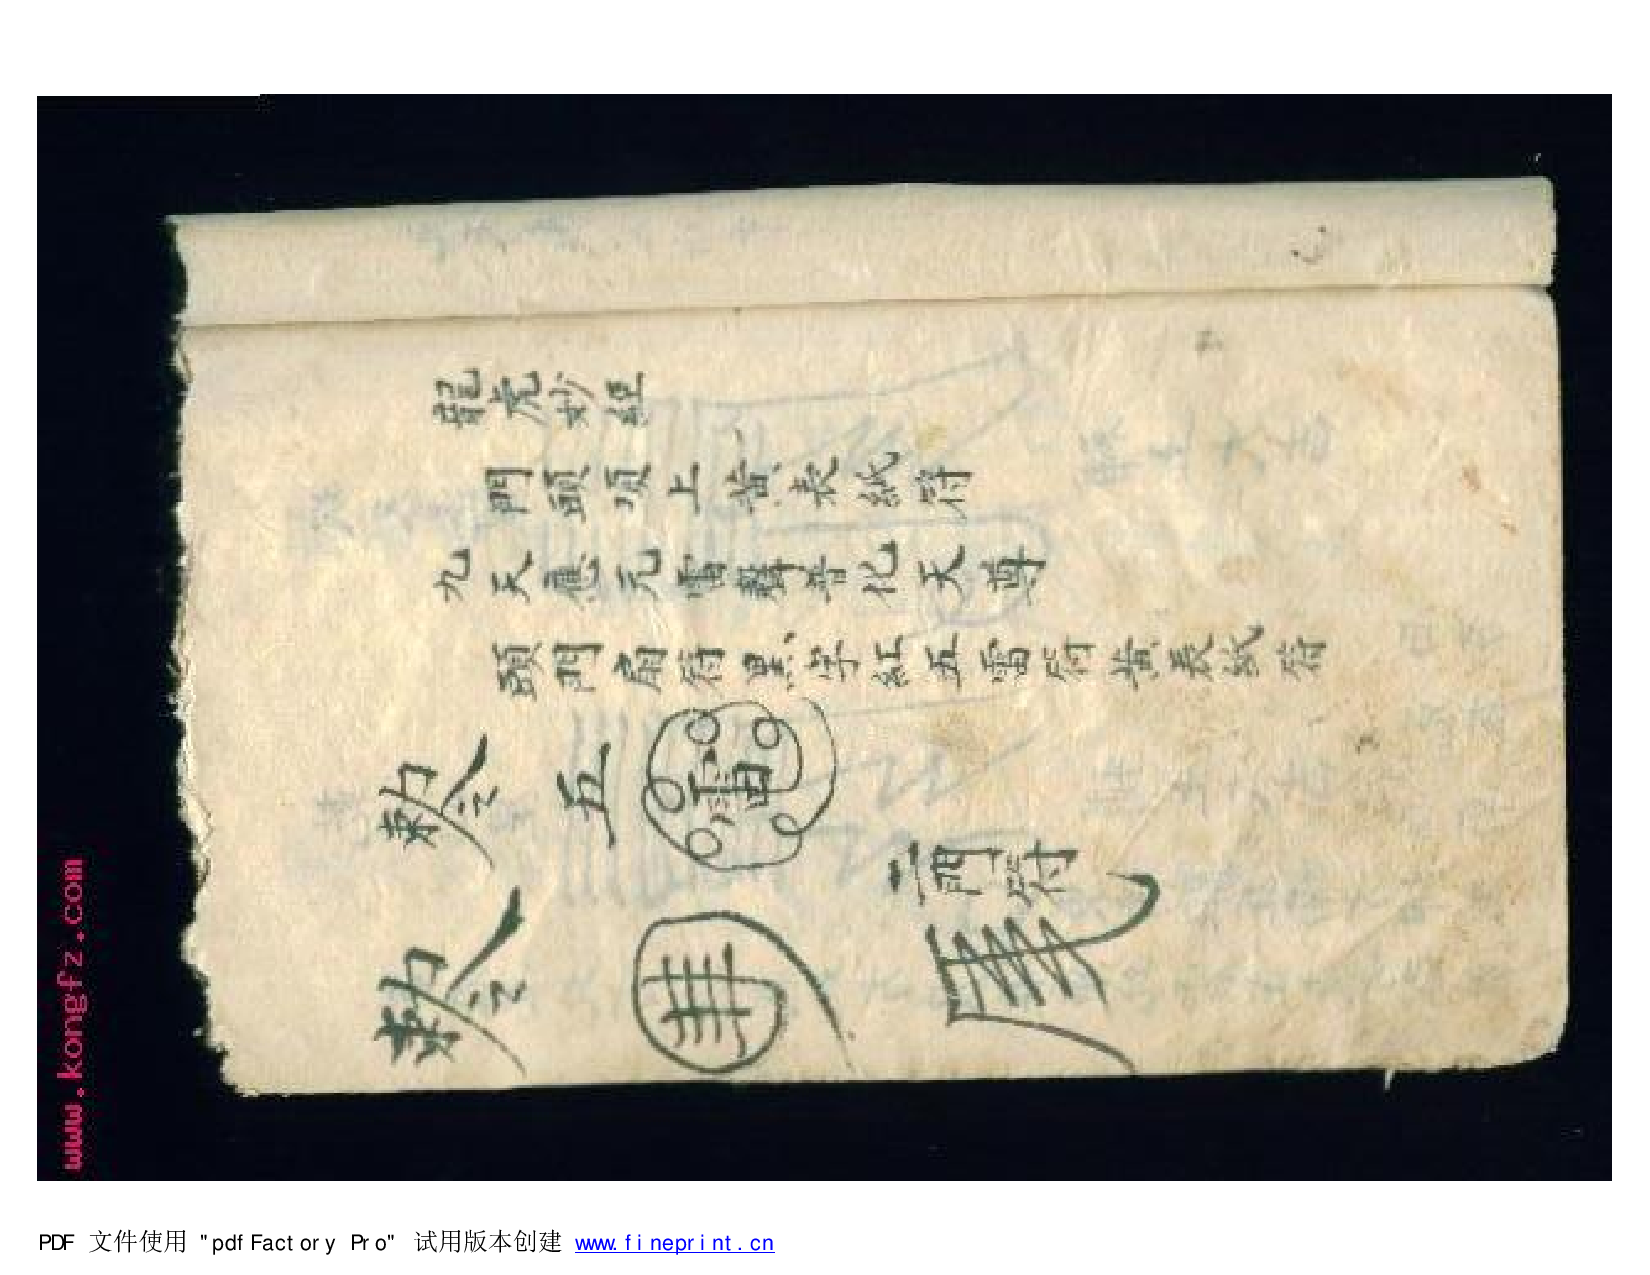 龍虎妙經
門頭項上黃表紙符
九天應元雷聲普化天尊
頭門角符黑字紅五雷符黃表紙符
敕令 五雷
敕令
二門符
www.kongfz.com
PDF 文件使用 "pdfFactory Pro" 试用版本创建 www.fineprint.cn